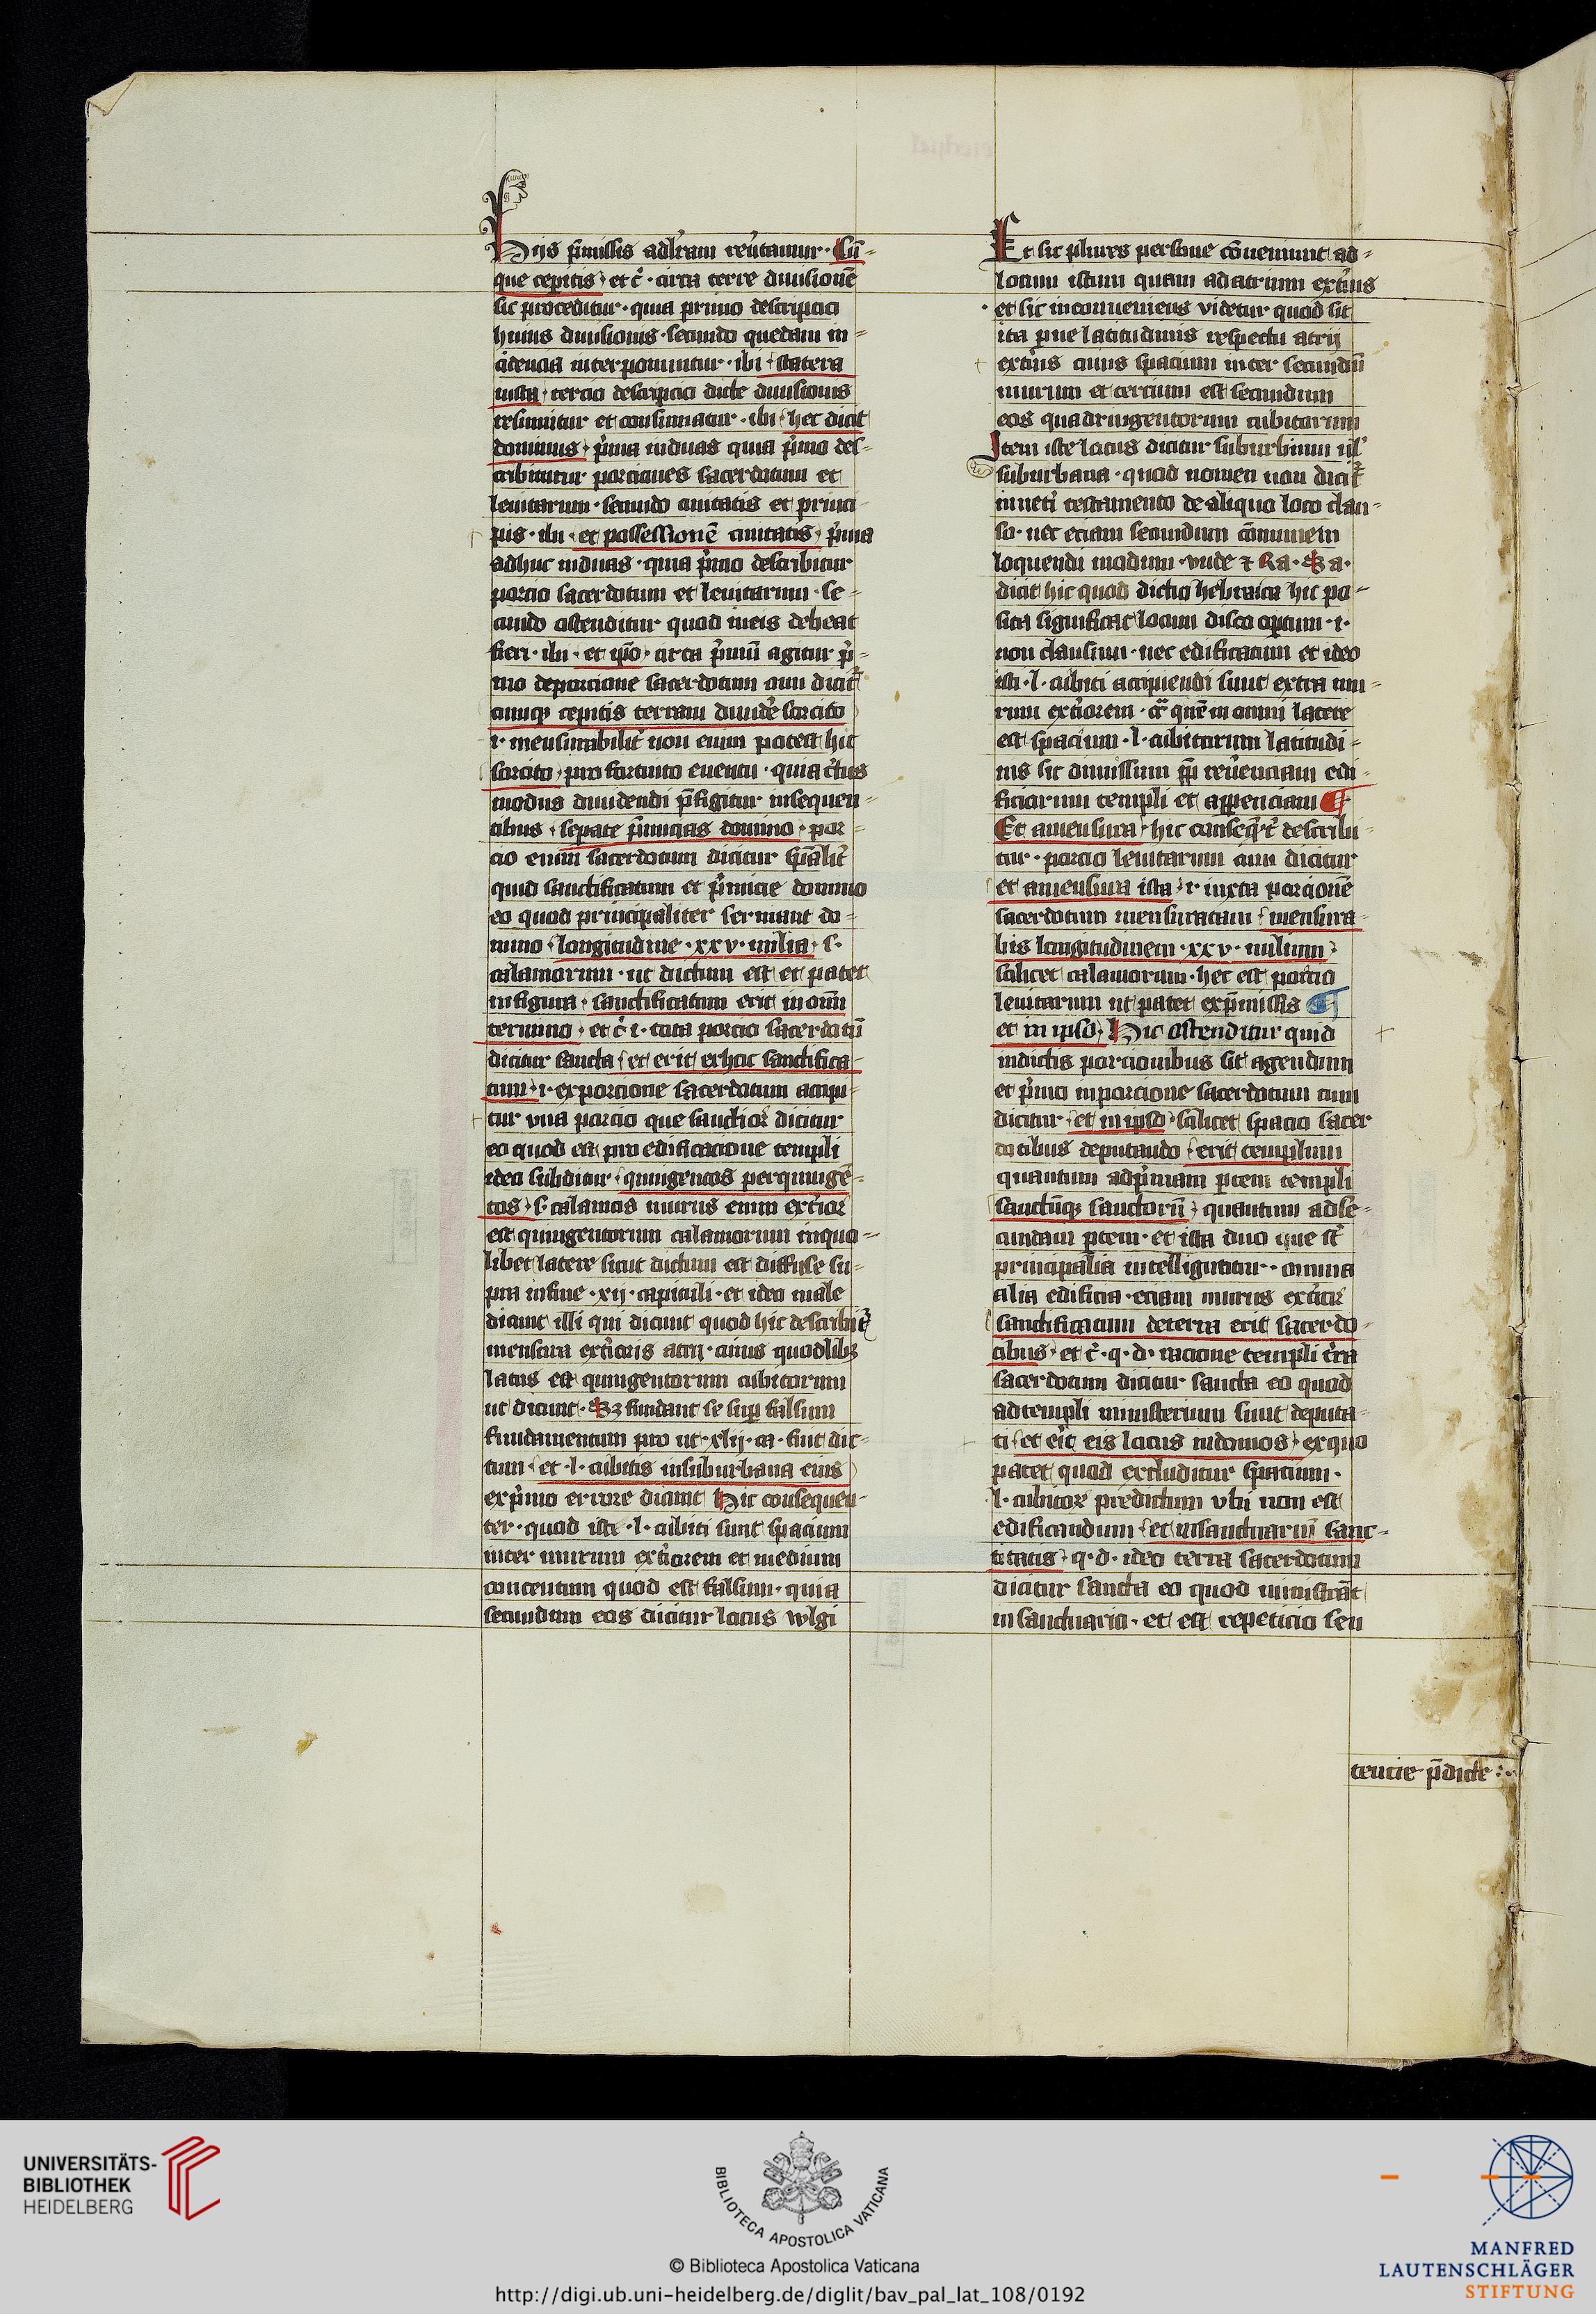 Hijs p̄missis ad lr̄am reu̓tamur · Cū-
que cepitis · et c̓ · circa terre diuisionē
sic proceditur · quia primo descripcio
huius diuisionis · secundo quedam in-
cidencia interponuntur · ibi · statera
iusta · tercio descripcio dicte diuisionis
resumitur et consumatur · ibi · hec dicit
dominus · p̓ma in duas quia p̓mo des-
cribuntur porciones sacerdotum et
leuitarum · secundo ciuitatis et princi-
pis · ibi · et possessionē ciuitatis · p̓ma
adhuc in duas · quia p̓mo describitur
porcio sacerdotum et leuitarum · se-
cundo ostenditur quod in eis debeat
fieri · ibi · et ip̄o · circa p̓mū agitur p̓-
mo de porcione sacerdotum cum dicit᷑
cumq₃ cepitis terram diuide̓ sorcito
·i· mensurabilit̓ non enim potest hic
sorcito · pro fortuito euentu · quia c̓tus
modus diuidendi p̄figitur in sequen-
tibus · sepate p̓micias domino · por-
cio enim sacerdotum dicitur sp̄alit̓
quid sanctificatum et p̓micie domino
eo quod principaliter seruiunt do-
mino · longitudine · xxv · milia · s ·
calamorum · ut dictum est et patet
in figura · sanctificatum erit in om̄i
termino · et c̓ · i · tota porcio sacerdotū
dicitur sancta · et erit ex hoc sanctifica-
tum · i · ex porcione sacerdotum accipi-
tur vna porcio que sanctior dicitur
eo quod est pro edificacione templi
ideo subditur · quingentos per quingē-
tos · s · calamos murus enim exte̓ior
est quingentorum calamorum in quo-
libet latere sicut dictum est diffuse su-
pra in fine · xij · capituli · et ideo male
dicunt illi qui dicunt quod hic describit᷑
mensura exte̓ioris atrij · cuius quodlib₃
latus est quingentorum cubitorum
ut dicunt · S₃ fundant se sup̱ falsum
fundamentum pro ut · xlij · ca · fuit dic-
tum · et · l · cubitis in suburbana eius
ex p̓mo errore dicunt Hic consequen-
ter · quod iste · l · cubiti sunt spacium
inter murum exte̓iorem et medium
contentum quod est falsum · quia
secundum eos dicitur locus wlgi
Et sic plures persone cōueniunt ad-
locum istum quam ad atrium exte̓ius
et sic inconueniens videtur quod sit
ita p̱ue latitudinis respectu atrij
exte̓ius cuius spacium inter secundū
murum et tercium est secundum
eos quadringentorum cubitorum
Item iste locus dicitur suburbium ul̓
suburbana · quod nomen non dicit᷑
in uet̓i testamento de aliquo loco clau-
so · nec eciam secundum cōmunem
loquendi modum · vnde ⁊ Ra · Sa ·
dicit hic quod dictio hebraica hic po-
sita significat locum disco optum · i ·
non clausum · nec edificatum et ideo
isti · l · cubiti accipiendi sunt extra mu-
rum exte̓iorem · c᷑ quē in omni latere
est spacium · l · cubitorum latitudi-
nis sic dimissum p̱p reue̓nciam edi-
ficiorum templi et appenciam ¶
Et a mensura · hic conseq̄n̓t̓ describi-
tur · porcio leuitarum cum dicitur
et a mensura ista · i · iuxta porcionē
sacerdotum mensuratam · mensura-
bis longitudinem · xxv · milium ·
scilicet calamorum · hec est porcio
leuitarum ut patet ex p̄missis ¶
et in ipso · Hic ostenditur quid
in dictis porcionibus sit agendum
et p̓mo in porcione sacerdotum cum
dicitur · et in ipso · scilicet spacio sacer
dotibus deputando · erit templum
quantum ad p̓mam p̱tem templi
sanctūq₃ sanctorū · quantum ad se-
cundam p̱tem · et ista duo que st̓
principalia intelliguntur · omnia
alia edificia · eciam murus exte̓ior
sanctificatum de terra erit sacerdo-
tibus · et c̓ · q · d · racione templi te̓ra
sacerdotum dicitur sancta eo quod
ad templi ministerium sunt deputa-
ti · et eĩt eis locus in domos · ex quo
patet quod excluditur spacium ·
l · cubitoꝝ predictum vbi non est
edificandum · et in sanctuariū sanc-
titatis · q · d · ideo terra sacerdotum
dicitur sancta eo quod ministrāt
in sanctuario · et est repeticio sen
tencie p̄dicte :·
UNIVERSITÄTS-
BIBLIOTHEK
HEIDELBERG
BIBLIOTECA APOSTOLICA VATICANA
© Biblioteca Apostolica Vaticana
http://digi.ub.uni-heidelberg.de/diglit/bav_pal_lat_108/0192
MANFRED
LAUTENSCHLÄGER
STIFTUNG